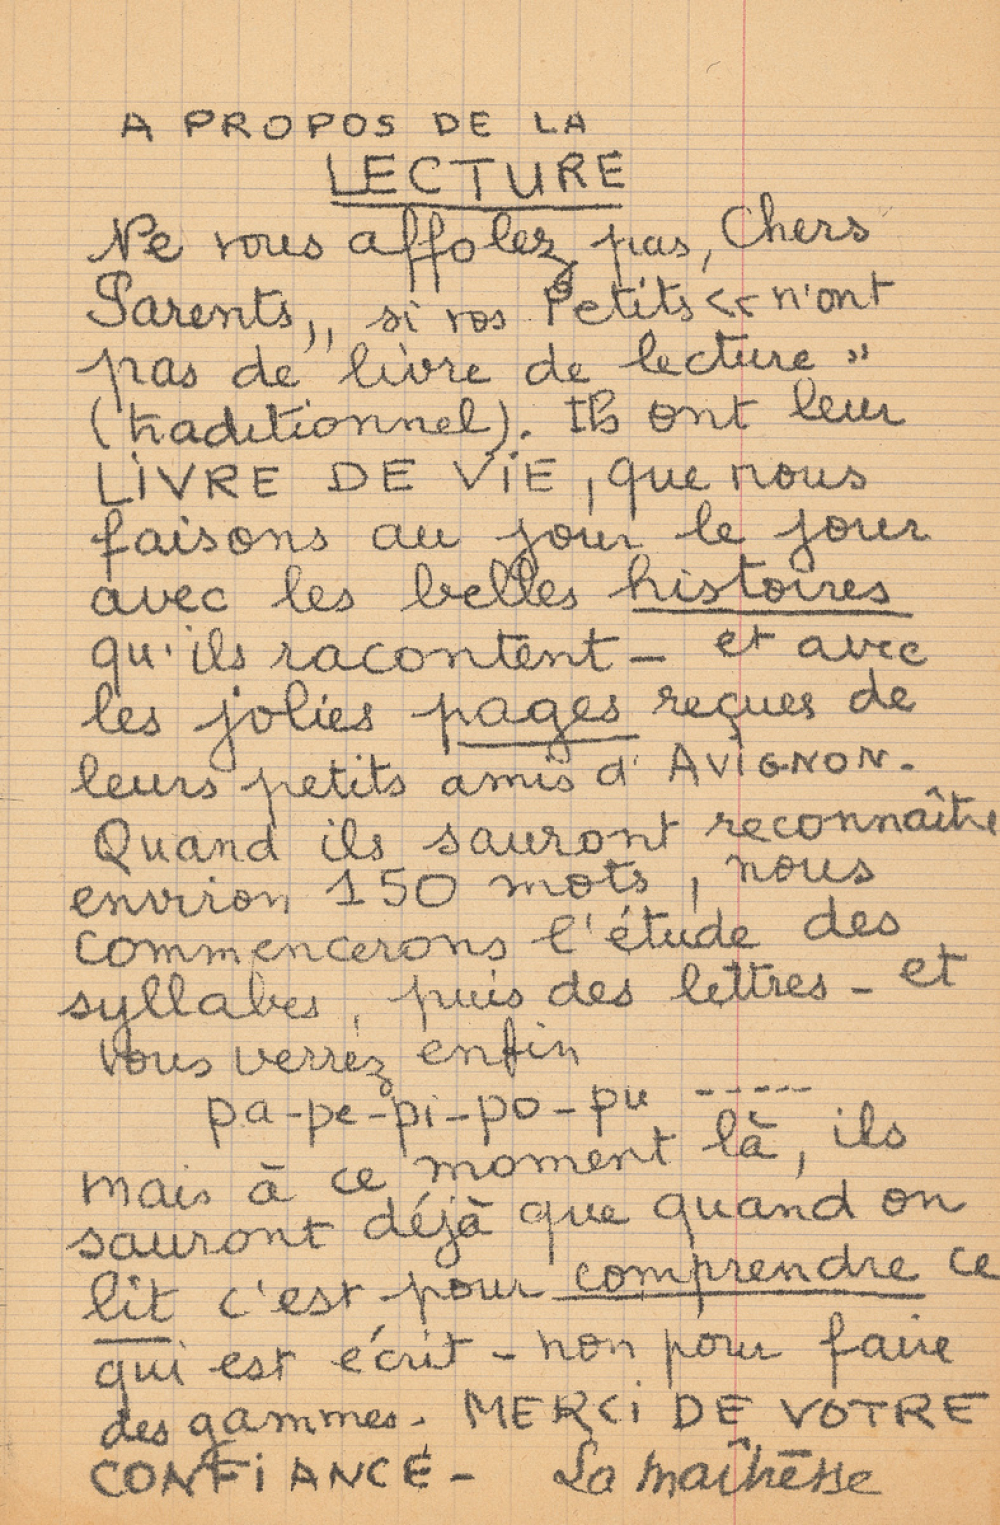 A PROPOS DE LA
LECTURE
Ne vous affolez pas, Chers
Parents,, si vos Petits << n'ont
pas de livre de lecture »
(traditionnel). Ils ont leur
LIVRE DE VIE, que nous
faisons au jour le jour
avec les belles histoires
qu'ils racontent - et avec
les jolies pages reçues de
leurs petits amis d'AVIGNON.
Quand ils sauront reconnaître
environ 150 mots, nous
commencerons l'étude des
syllabes, puis des lettres - et
vous verrez enfin
pa-pe-pi-po-pu -----
mais à ce moment là, ils
sauront déjà que quand on
lit c'est pour comprendre ce
qui est écrit - non pour faire
des gammes. MERCI DE VOTRE
CONFIANCE - La maîtresse